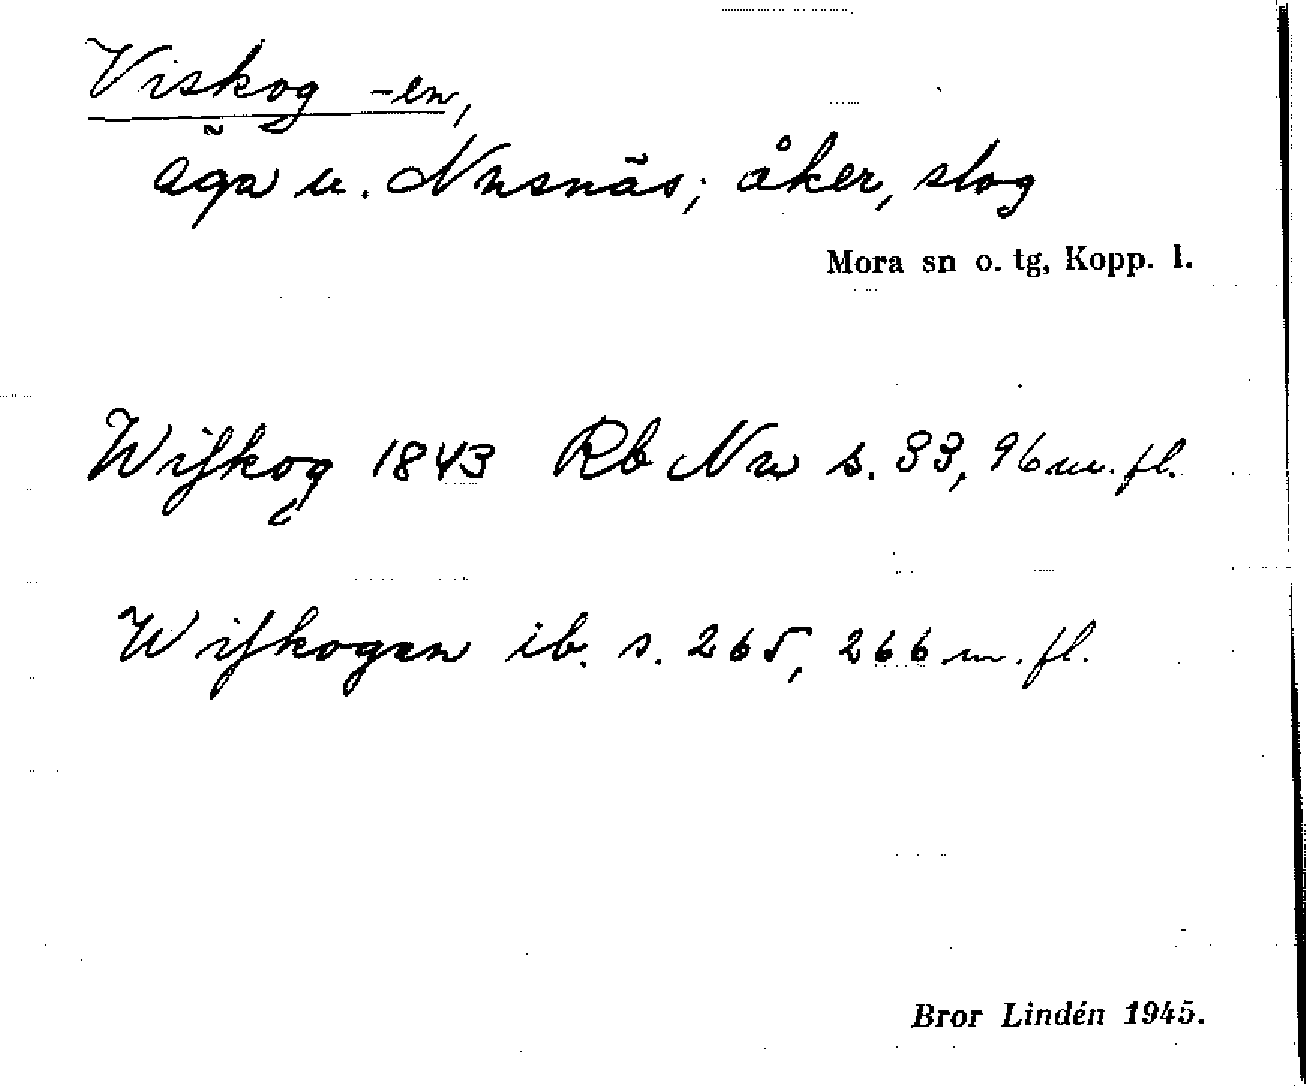 Viskog -en,
äga u. Nusnäs; åker, slog
Mora sn o. tg, Kopp. l.
Wiſkog 1843 Rb Nu s. 33, 96 m. fl.
Wiſkogen ib. s. 265, 266 m. fl.
Bror Lindén 1945.